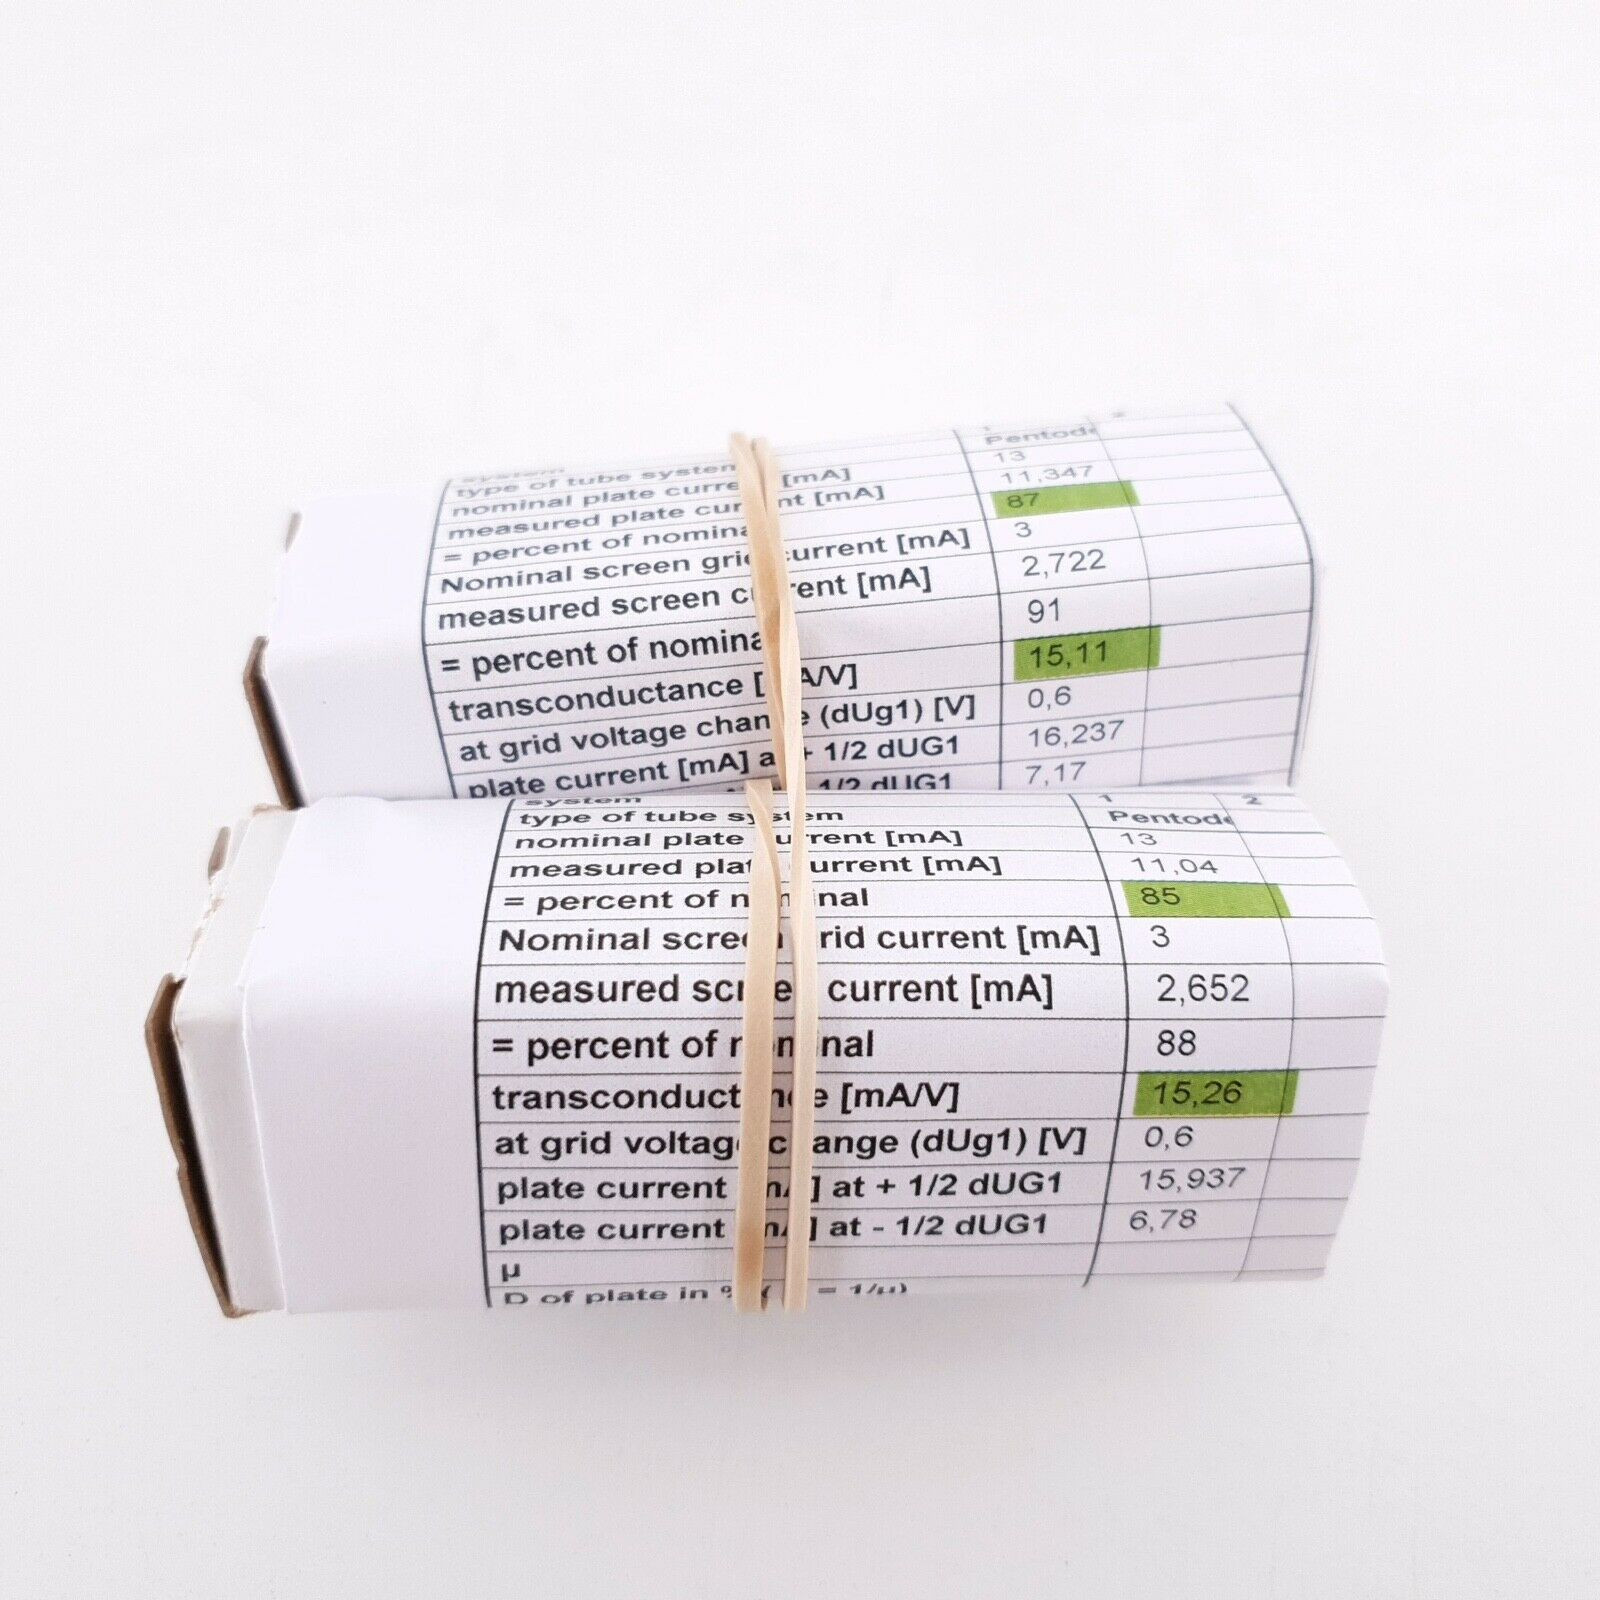 system 1 2
type of tube system Pentode
nominal plate curre [mA] 13
measured plate cur nt [mA] 11,347
= percent of nomina 87
Nominal screen gri current [mA] 3
measured screen c rent [mA] 2,722
= percent of nomina 91
transconductance [ A/V] 15,11
at grid voltage chan e (dUg1) [V] 0,6
plate current [mA] a + 1/2 dUG1 16,237
1/2 dUG1 7,17
system 1 2
type of tube sy em Pentode
nominal plate urrent [mA] 13
measured plat urrent [mA] 11,04
= percent of n inal 85
Nominal scree rid current [mA] 3
measured scr e current [mA] 2,652
= percent of n nal 88
transconduct n e [mA/V] 15,26
at grid voltag c ange (dUg1) [V] 0,6
plate current m ] at + 1/2 dUG1 15,937
plate current m ] at - 1/2 dUG1 6,78
µ
D of plate in % ( = 1/µ)